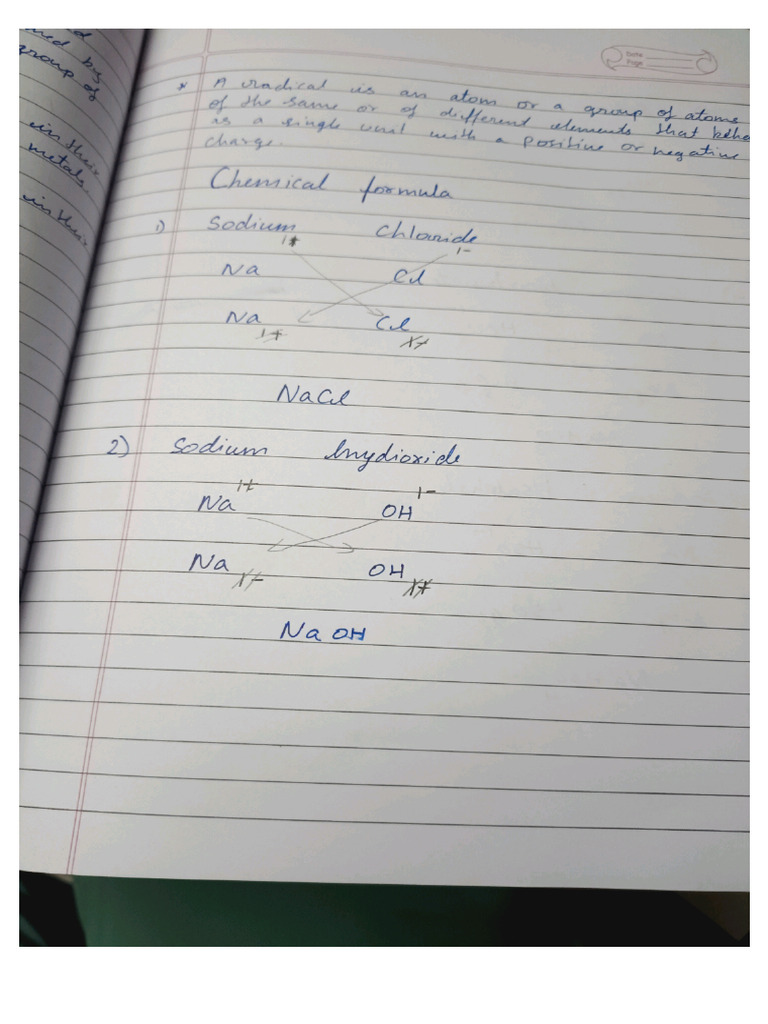 ned by
group of
in their
metals.
in their
Date
Page
* A radical is an atom or a group of atoms
of the same or of different elements that beha
as a single unit with a positive or negative
charge.
Chemical formula
1) Sodium Chloride
1+ 1-
Na Cl
Na Cl
NaCl
2) Sodium hydioxide
1+ 1-
Na OH
Na OH
NaOH